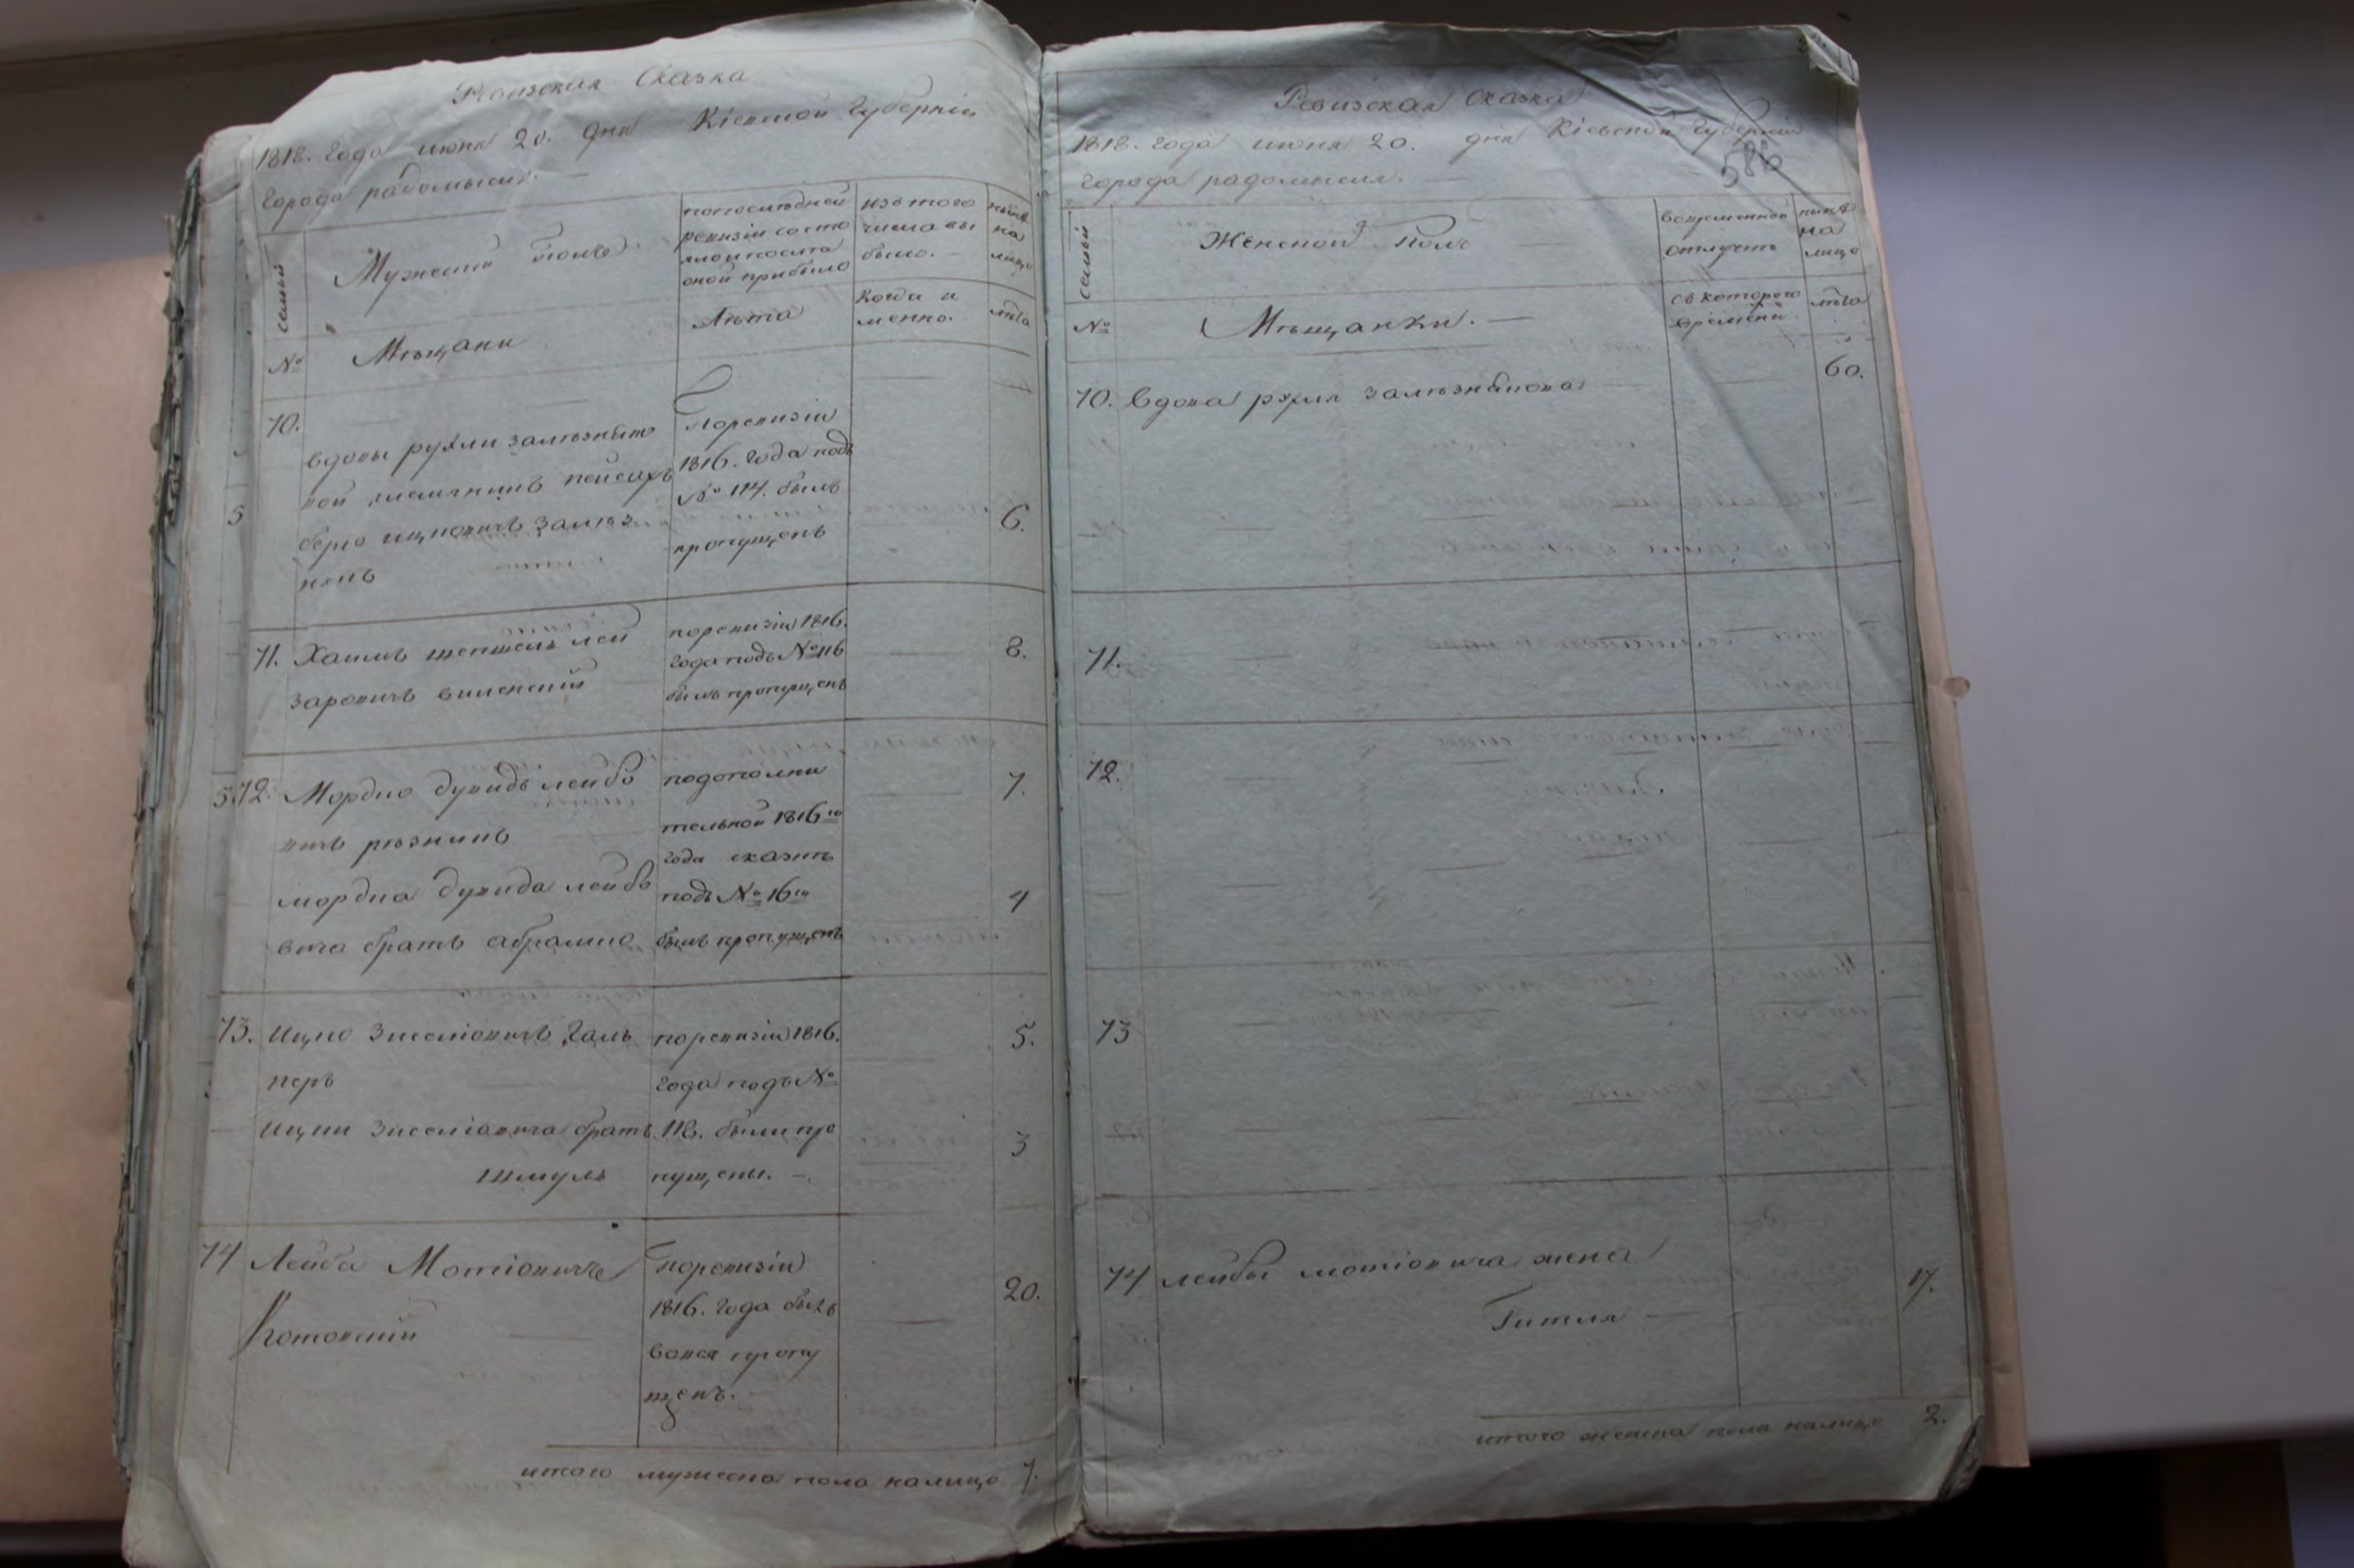 Ревизская Сказка
1818. года июня 20. дня Кіевской Губерніи
города радомысля.
семьи
Мужеской полъ
попослѣдней
ревизіи состо
яло и после
оной прибыло
изъ того
числа вы
было.
ныне
на
лицо
№
Мѣщани
Лѣта
когда и
менно.
лѣта
70.
вдовы рухли залѣзняко
вой племянникъ пейсахъ
берко ицковичъ залѣз
някъ
поревизіи
1816. года подъ
№ 114. былъ
пропущенъ
6.
5
71. Хаимъ шепшель лей
заровичъ виленский
поревизіи 1816.
года подъ № 116
былъ пропущенъ
8.
72. Мордко дувидъ лейбо
вичъ рѣзникъ
мордка дувида лейбо
вича братъ абрамко
подополни
тельной 1816го
года сказкѣ
подъ № 16м
былъ пропущенъ
7.
4
73. Ицко Зиселіовичъ Галь
перъ
ицки Зиселіовича братъ
шмуль
поревизіи 1816.
года подъ №
118. были про
пущены. —
5.
3
74 Лейба Мотіовичъ
Котовский
поревизіи
1816. года былъ
вовся пропу
щенъ.
20.
итого мужеска пола налицо 7.
Ревизская Сказка
1818. года июня 20. дня Кіевской Губерніи
города радомысля.
586
семьи
Женской полъ
вовременной
отлучке
ныне
на
лицо
№
Мѣщанки. —
съ которого
времени.
лѣта
70. вдова рухля залѣзнякова
60.
71.
72.
73
74 лейбы мотіовича жена
Гитля —
17.
итого женска пола налицо 2.